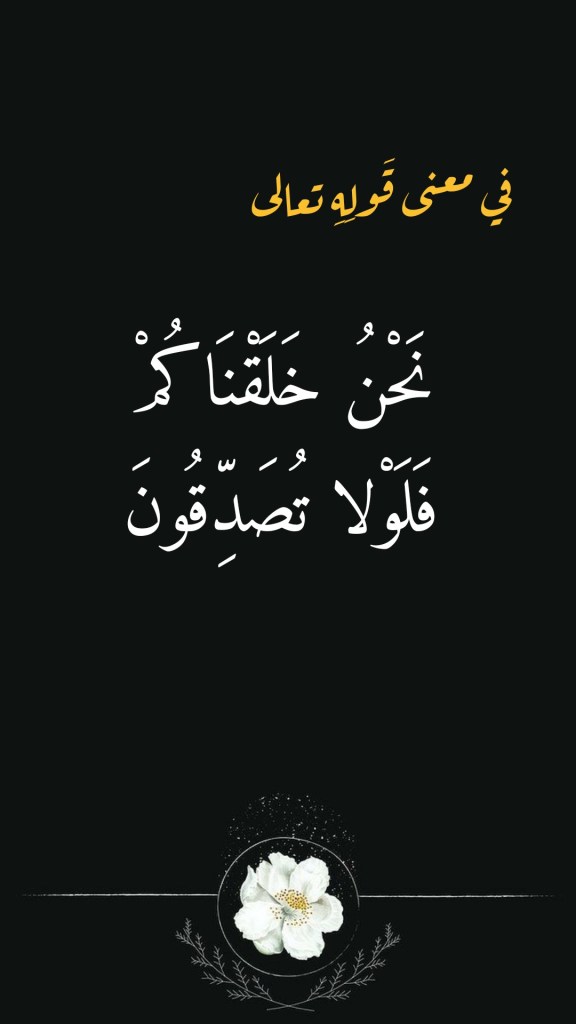 في معنى قَولِهِ تعالى
نَحْنُ خَلَقْنَاكُمْ
فَلَوْلا تُصَدِّقُونَ